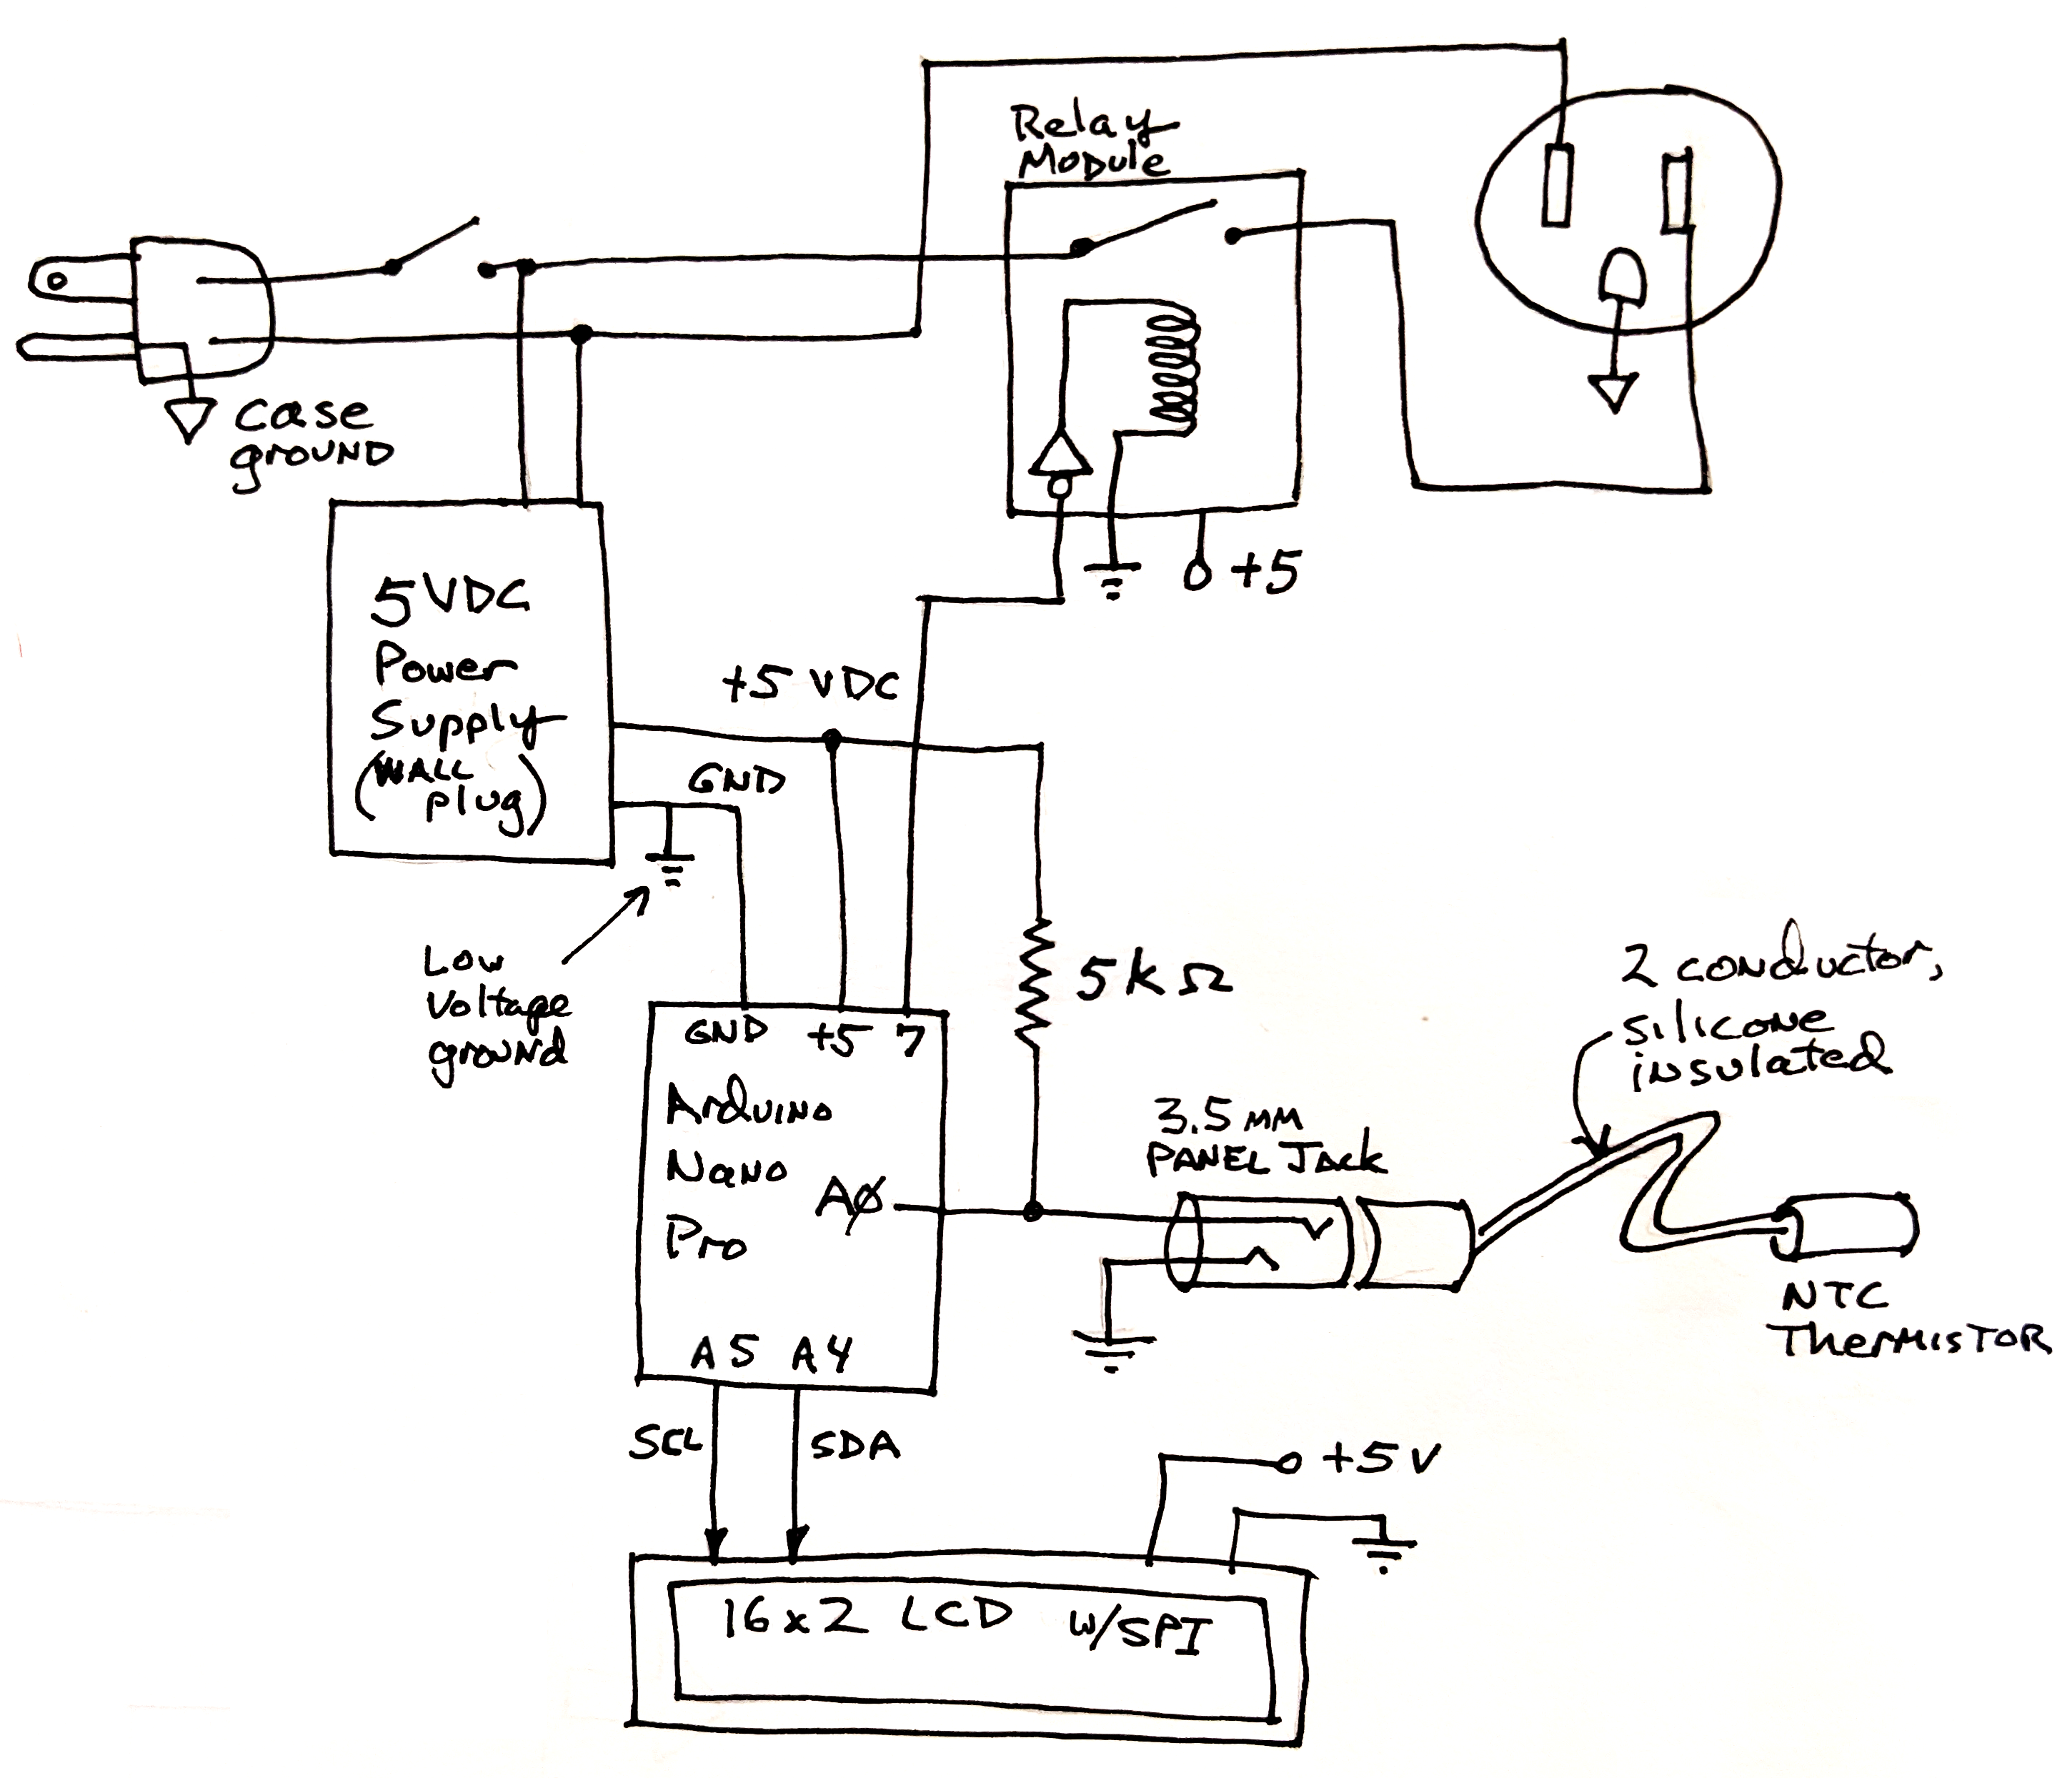 Relay
Module
case
ground
+5
5VDC
Power
Supply
(WALL
plug)
+5 VDC
GND
Low
Voltage
ground
5kΩ
2 conductor,
silicone
insulated
GND +5 7
Arduino
Nano
Pro
AØ
A5 A4
3.5mm
PANEL Jack
NTC
Thermistor
SCL
SDA
+5V
16x2 LCD w/SPI